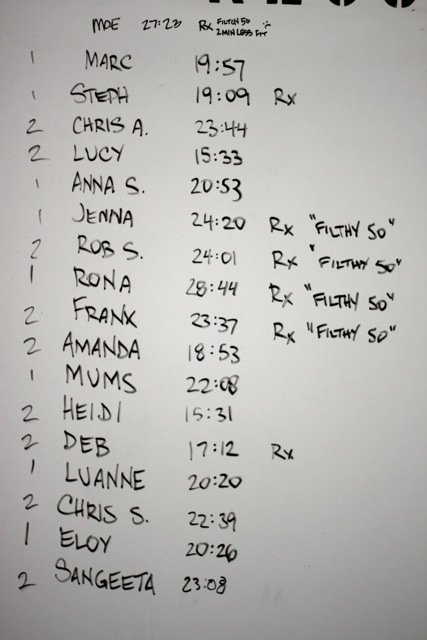 MOE 27:23 Rx FILTHY 50
2 MIN LESS FIT
1 MARC 19:57
1 STEPH 19:09 Rx
2 CHRIS A. 23:44
2 LUCY 15:33
1 ANNA S. 20:53
1 JENNA 24:20 Rx "FILTHY 50"
2 ROB S. 24:01 Rx "FILTHY 50"
1 RONA 28:44 Rx "FILTHY 50"
2 FRANK 23:37 Rx "FILTHY 50"
2 AMANDA 18:53
1 MUMS 22:08
2 HEIDI 15:31
2 DEB 17:12 Rx
1 LUANNE 20:20
2 CHRIS S. 22:39
1 ELOY 20:26
2 SANGEETA 23:08